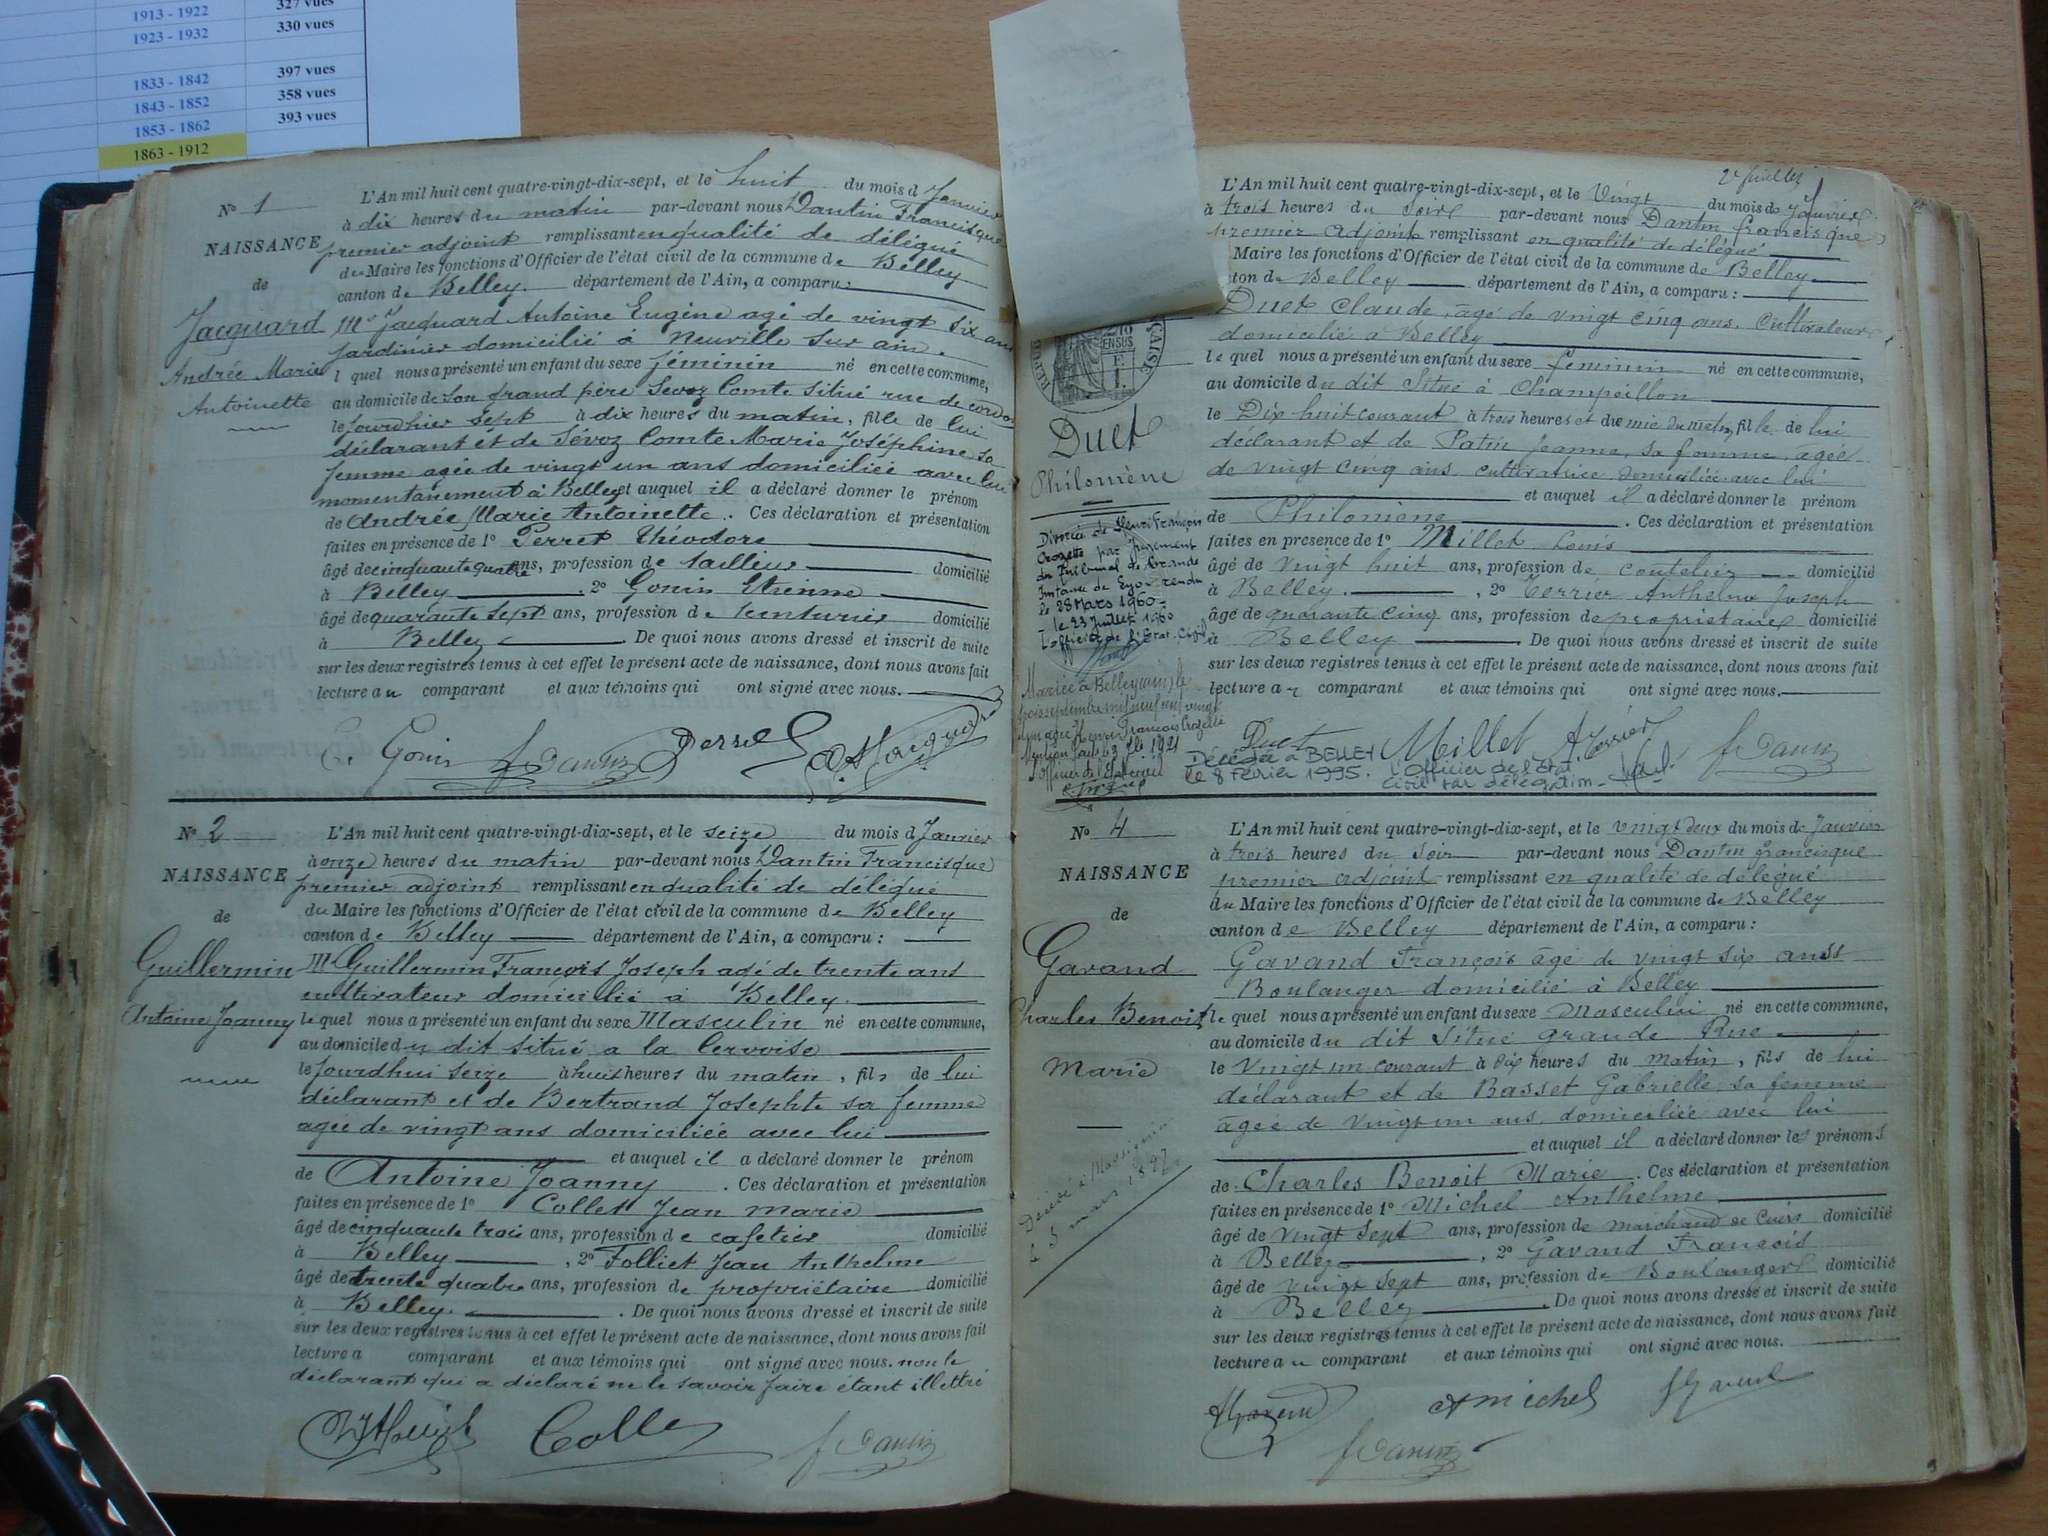 1913 - 1922
327 vues
1923 - 1932
330 vues
1833 - 1842
397 vues
1843 - 1852
358 vues
1853 - 1862
393 vues
1863 - 1912
No 1
NAISSANCE
de
Jacquard
Andrée Marie
Antoinette
L'An mil huit cent quatre-vingt-dix-sept, et le huit du mois d Janvier
à dix heures du matin par-devant nous Dantin Francisque
premier adjoint remplissant en qualité de délégué
du Maire les fonctions d'Officier de l'état civil de la commune de Belley
canton de Belley. département de l'Ain, a comparu :
Mr Jacquard Antoine Eugène agé de vingt six ans
jardinier domicilié à Neuville sur ain.
l quel nous a présenté un enfant du sexe féminin né en cette commune,
au domicile de son grand père Sevoz Comte situé rue de
le jourdhier sept à dix heures du matin, fille de lui
déclarant et de Sévoz Comte Marie Joséphine sa
femme agée de vingt un ans domiciliée avec lui
momentanement à Belley et auquel il a déclaré donner le prénom
de Andrée Marie Antoinette. Ces déclaration et présentation
faites en présence de 1o Perret Théodore
âgé de cinquante quatre ans, profession de tailleur domicilié
à Belley , 2o Gonin Etienne
âgé de quarante sept ans, profession de teinturier domicilié
à Belley . De quoi nous avons dressé et inscrit de suite
sur les deux registres tenus à cet effet le présent acte de naissance, dont nous avons fait
lecture au comparant et aux témoins qui ont signé avec nous.
Gonin f Dantin Perret Jacquard
No 2
NAISSANCE
de
Guillermin
Antoine Joanny
L'An mil huit cent quatre-vingt-dix-sept, et le seize du mois d Janvier
à onze heures du matin par-devant nous Dantin Francisque
premier adjoint remplissant en qualité de délégué
du Maire les fonctions d'Officier de l'état civil de la commune de Belley
canton de Belley département de l'Ain, a comparu :
Mr Guillermin François Joseph agé de trente ans
cultivateur domicilié à Belley.
le quel nous a présenté un enfant du sexe Masculin né en cette commune,
au domicile du dit situé a la Cervoise
le jourdhui seize à huit heures du matin, fils de lui
déclarant et de Bertrand Josephte sa femme
agée de vingt ans domiciliée avec lui
et auquel il a déclaré donner le prénom
de Antoine Joanny . Ces déclaration et présentation
faites en présence de 1o Collet Jean Marie
âgé de cinquante trois ans, profession de cafetier domicilié
à Belley , 2o Folliet Jean Anthelme
âgé de trente quatre ans, profession de propriétaire domicilié
à Belley. . De quoi nous avons dressé et inscrit de suite
sur les deux registres tenus à cet effet le présent acte de naissance, dont nous avons fait
lecture a comparant et aux témoins qui ont signé avec nous. non le
déclarant qui a déclaré ne le savoir faire étant illettré
Collet f Dantin
2e feuillet
Duet
Philomène
Divorcée de Henri François
Crozette par jugement
du Tribunal de Grande
Instance de Lyon rendu
le 28 Mars 1960.
le 23 Juillet 1960
l'officier de l'Etat-Civil
Mariée à Belley (ain) le
trois septembre mil neuf cent vingt
un avec Henri François Crozette
l'Officier de l'Etat civil
L'An mil huit cent quatre-vingt-dix-sept, et le Vingt du mois de Janvier
à trois heures du soir par-devant nous Dantin francisque
premier adjoint remplissant en qualité de délégué
Maire les fonctions d'Officier de l'état civil de la commune de Belley
canton de Belley département de l'Ain, a comparu :
Duet Claude, âgé de vingt cinq ans, Cultivateur
domicilié à Belley
le quel nous a présenté un enfant du sexe feminin né en cette commune,
au domicile du dit Situé à Champeillon
le Dix huit courant à trois heures et du mie du matin, fille de lui
déclarant et de Patin Jeanne, sa femme, agée
de vingt cinq ans cultivatrice domiciliée avec lui
et auquel il a déclaré donner le prénom
de Philomène . Ces déclaration et présentation
faites en présence de 1o Millet Louis
âgé de vingt huit ans, profession de coutelier domicilié
à Belley. , 2o Terrier Anthelme Joseph
âgé de quarante cinq ans, profession de propriétaire domicilié
à Belley . De quoi nous avons dressé et inscrit de suite
sur les deux registres tenus à cet effet le présent acte de naissance, dont nous avons fait
lecture au comparant et aux témoins qui ont signé avec nous.
Duet Millet A Terrier f Dantin
Décédée à BELLEY
le 8 février 1995.
l'Officier de l'Etat
Civil par délégation
No 4
NAISSANCE
de
Gavand
Charles Benoit
Marie
Décédé à Massignieu
le 5 mars 1897
L'An mil huit cent quatre-vingt-dix-sept, et le vingt deux du mois de Janvier
à trois heures du soir par-devant nous Dantin francisque
premier adjoint remplissant en qualité de délégué
du Maire les fonctions d'Officier de l'état civil de la commune de Belley
canton de Belley département de l'Ain, a comparu :
Gavand François âgé de vingt six ans
Boulanger domicilié à Belley
le quel nous a présenté un enfant du sexe Masculin né en cette commune,
au domicile du dit Situé Grande Rue
le Vingt un courant à dix heures du matin, fils de lui
déclarant et de Basset Gabrielle, sa femme
âgée de vingt un ans, domiciliée avec lui
et auquel il a déclaré donner les prénoms
de Charles Benoit Marie . Ces déclaration et présentation
faites en présence de 1o Michel Anthelme
âgé de vingt sept ans, profession de marchand de Cuirs domicilié
à Belley , 2o Gavand François
âgé de vingt sept ans, profession de Boulanger domicilié
à Belley . De quoi nous avons dressé et inscrit de suite
sur les deux registres tenus à cet effet le présent acte de naissance, dont nous avons fait
lecture au comparant et aux témoins qui ont signé avec nous.
A michel
f Dantin